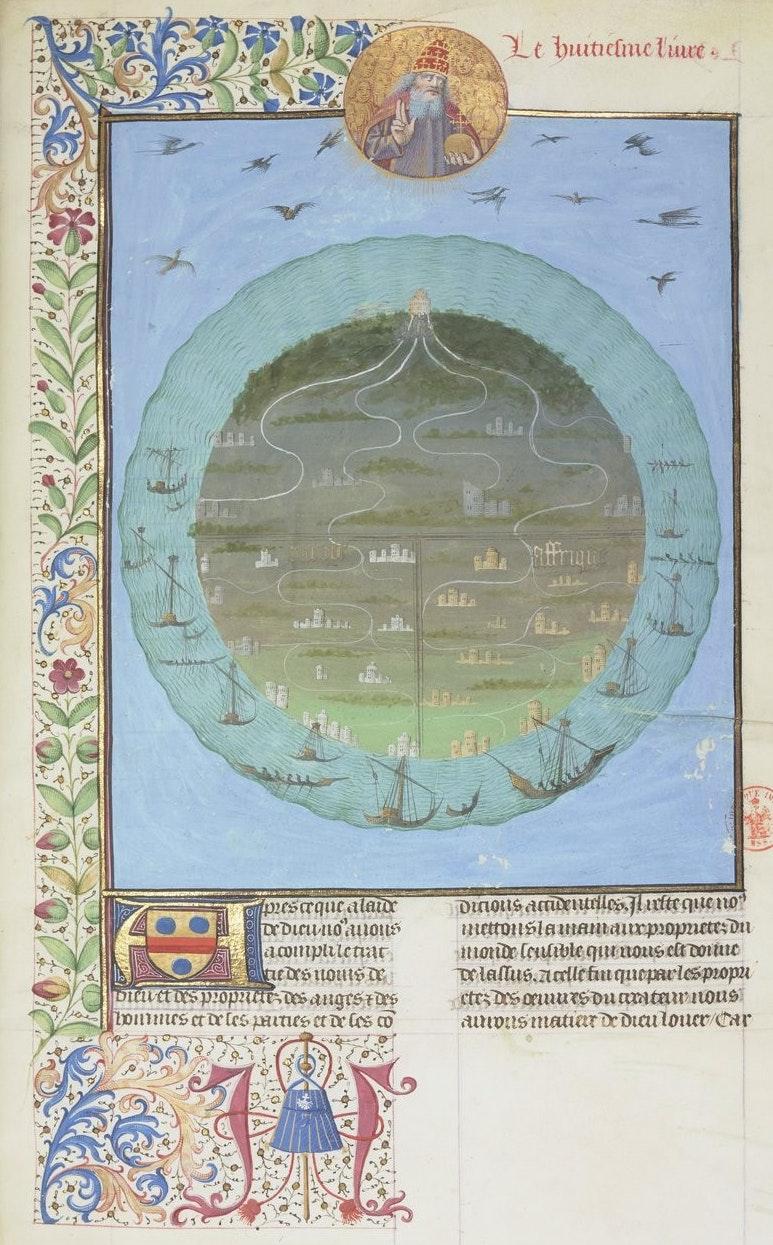 Le huitiesme liure
affrique
A
pres ce que a laide
de dieu no9 auons
acompli le trac
tie des noms de
dieu et des proprietez des anges & des
hommes et de ses parties et de ses co
dicions accidentelles. Il reste que no9
mettons la main aux proprietez du
monde sensible qui nous est donne
de lassus. A celle fin que par les propri
etez des œuures du createur nous
aurons matiere de dieu louer / Car